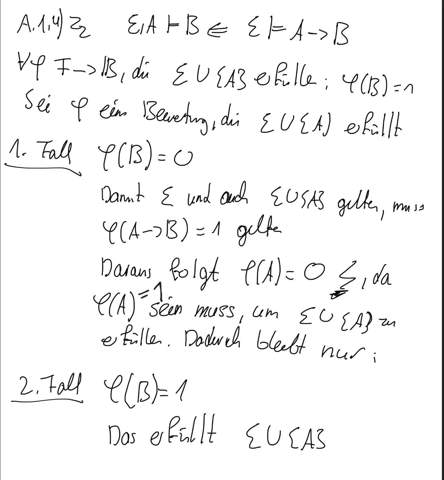 A.1,4) Zz Σ,A ⊢ B ⇐ Σ ⊨ A->B
∀φ F->IB, die Σ∪{A} erfülle: φ(B)=1
Sei φ ein Bewertung, die Σ∪{A} erfüllt
1. Fall φ(B)=0
Damit Σ und auch Σ∪{A} gelten, muss
φ(A->B)=1 gelten
Daraus folgt φ(A)=0 ↯, da
φ(A)=1 sein muss, um Σ∪{A} zu
erfüllen. Dadurch bleibt nur:
2. Fall φ(B)=1
Das erfüllt Σ∪{A}